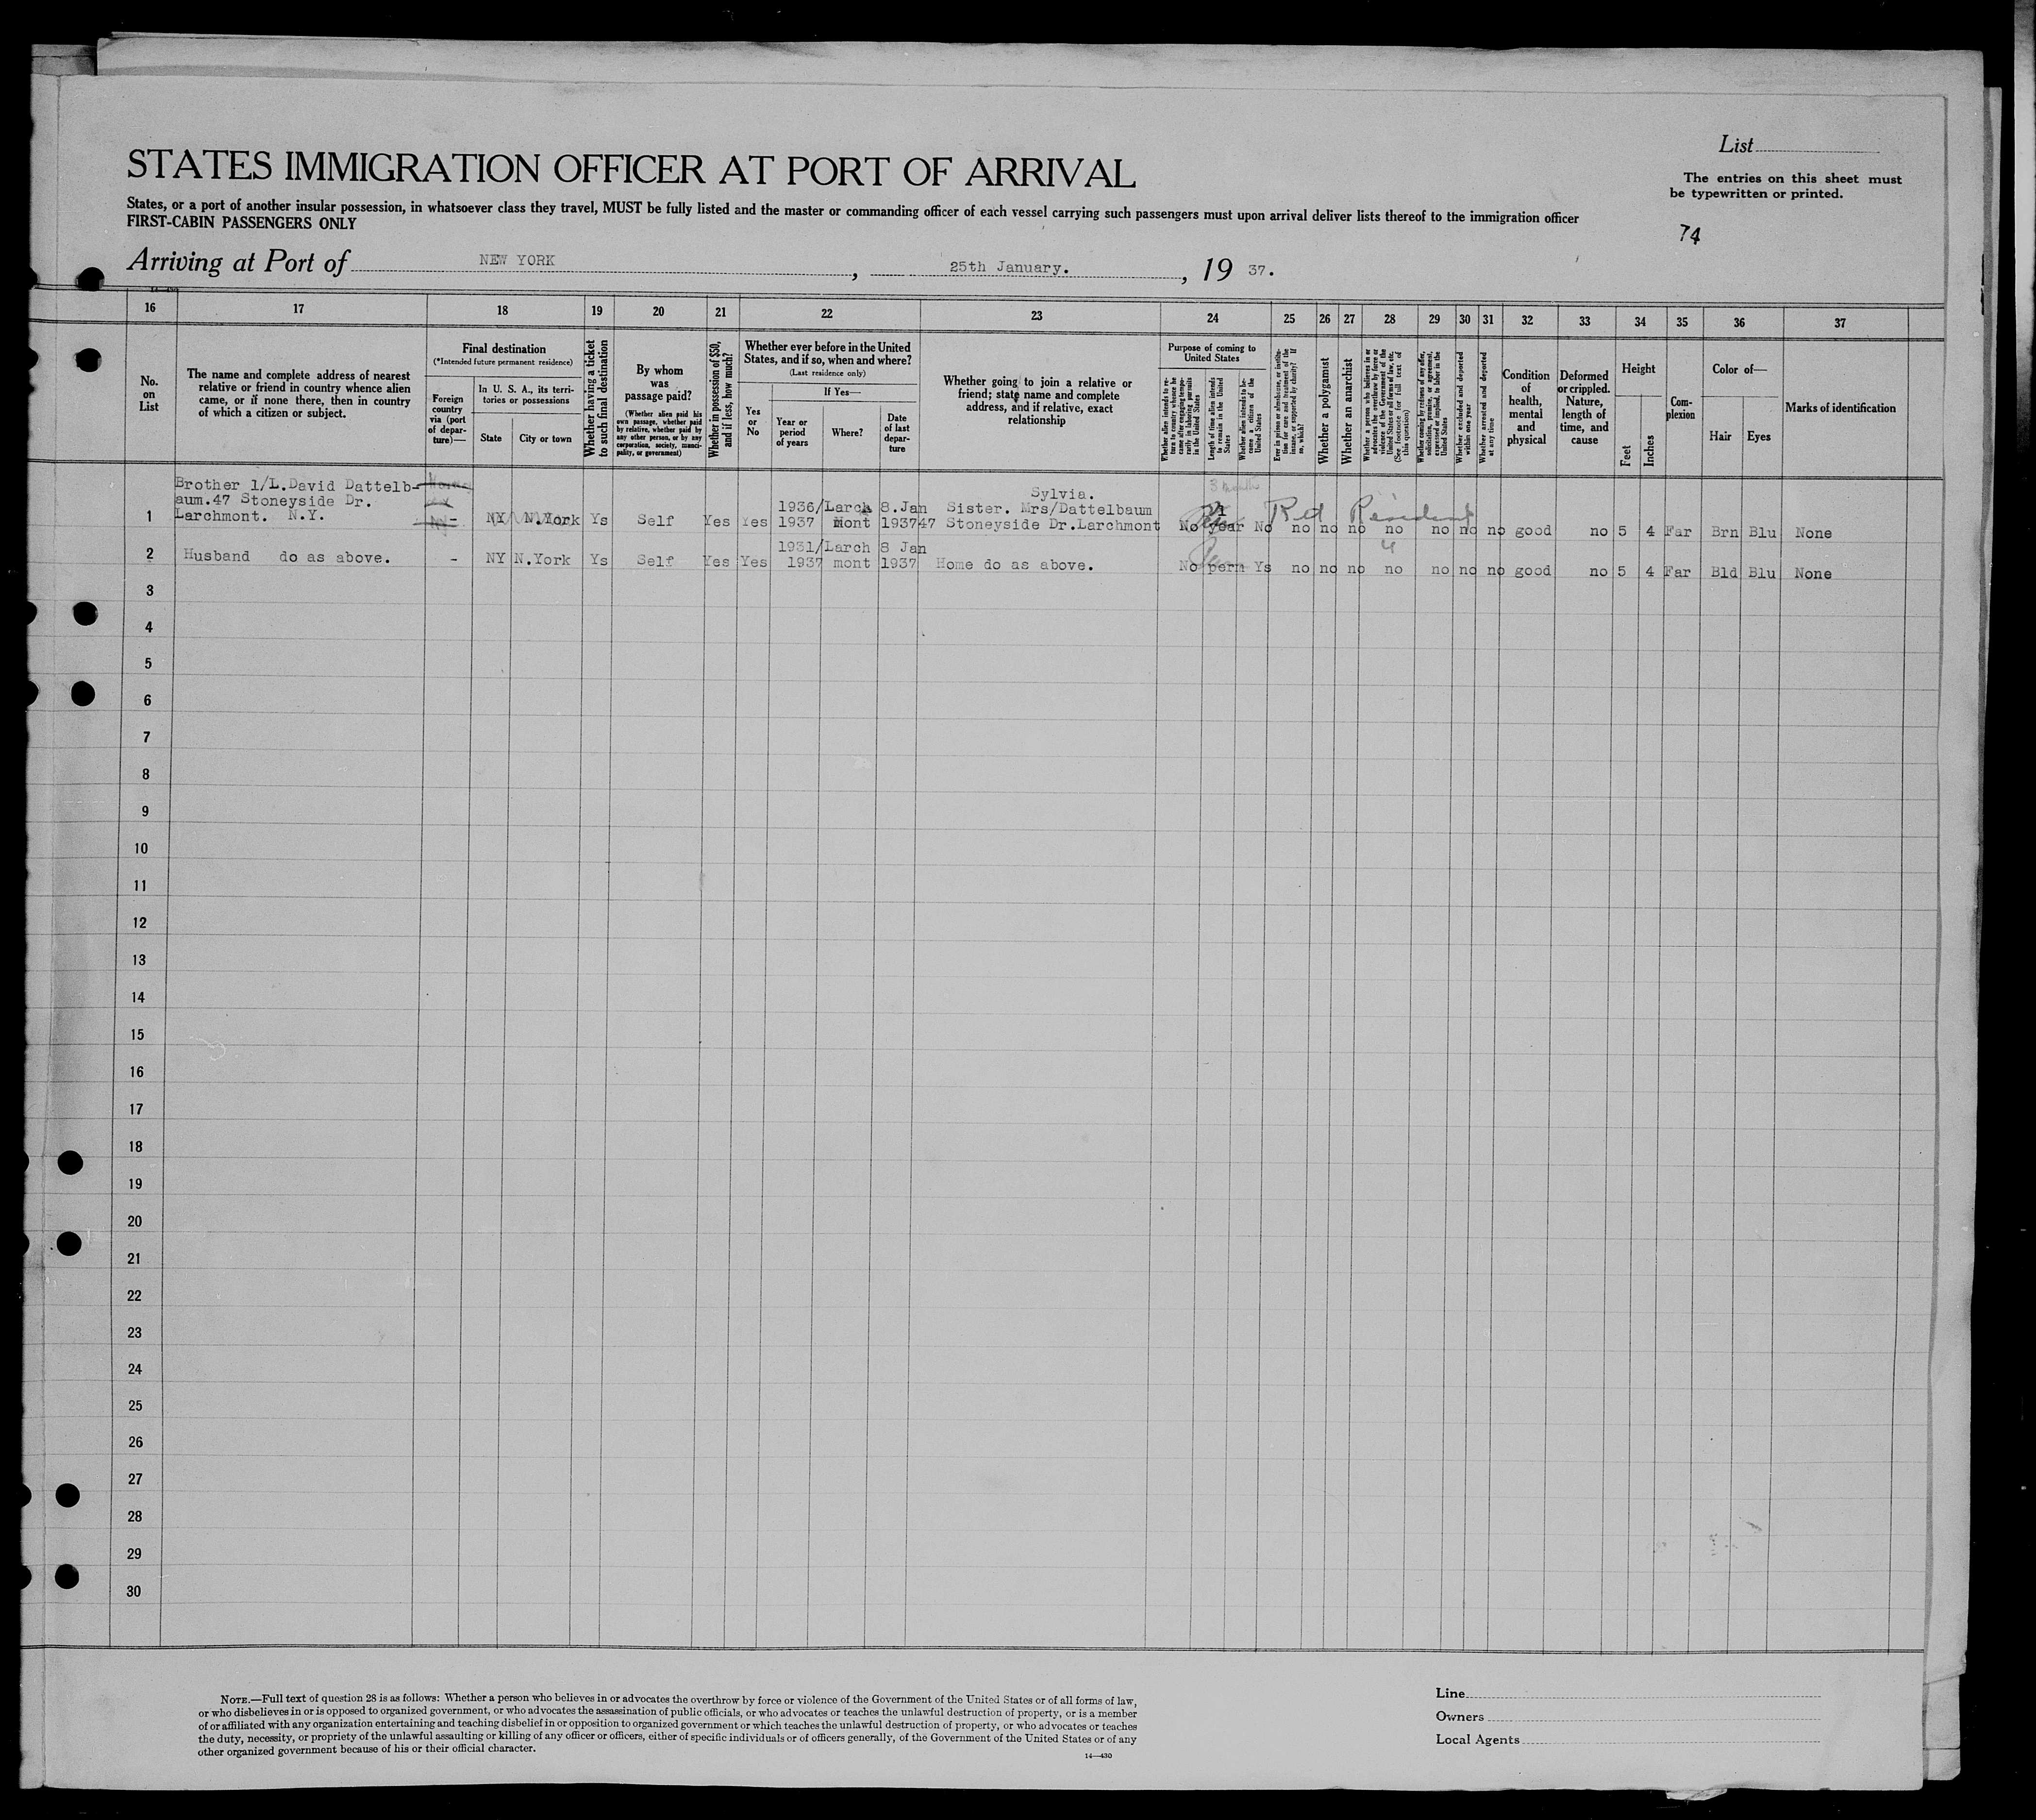 List
STATES IMMIGRATION OFFICER AT PORT OF ARRIVAL
The entries on this sheet must
be typewritten or printed.
States, or a port of another insular possession, in whatsoever class they travel, MUST be fully listed and the master or commanding officer of each vessel carrying such passengers must upon arrival deliver lists thereof to the immigration officer
FIRST-CABIN PASSENGERS ONLY
74
Arriving at Port of NEW YORK, 25th January., 19 37.
16 17 18 19 20 21 22 23 24 25 26 27 28 29 30 31 32 33 34 35 36 37
No. on List
The name and complete address of nearest
relative or friend in country whence alien
came, or if none there, then in country
of which a citizen or subject.
Final destination
(*Intended future permanent residence)
Foreign
country
via (port
of depar-
ture)—
In U. S. A., its terri-
tories or possessions
State
City or town
Whether having a ticket
to such final destination
By whom
was
passage paid?
(Whether alien paid his
own passage, whether paid
by relative, whether paid by
any other person, or by any
corporation, society, munici-
pality, or government)
Whether in possession of $50,
and if less, how much?
Whether ever before in the United
States, and if so, when and where?
(Last residence only)
Yes
or
No
If Yes—
Year or
period
of years
Where?
Date
of last
depar-
ture
Whether going to join a relative or
friend; state name and complete
address, and if relative, exact
relationship
Purpose of coming to
United States
Whether alien intends to re-
turn to country whence he
came after engaging tempo-
rarily in laboring pursuits
in the United States
Length of time alien intends
to remain in the United
States
Whether alien intends to be-
come a citizen of the
United States
Ever in prison or almshouse, or institu-
tion for care and treatment of the
insane, or supported by charity? If
so, which?
Whether a polygamist
Whether an anarchist
Whether a person who believes in or
advocates the overthrow by force or
violence of the Government of the
United States or all forms of law, etc.
(See footnote for full text of
this question)
Whether coming by reason of any offer,
solicitation, promise, or agreement,
expressed or implied, to labor in the
United States
Whether excluded and deported
within one year
Whether arrested and deported
at any time
Condition
of
health,
mental
and
physical
Deformed
or crippled.
Nature,
length of
time, and
cause
Height
Feet
Inches
Com-
plexion
Color of—
Hair
Eyes
Marks of identification
Brother 1/L.David Dattelb-
aum.47 Stoneyside Dr.
Larchmont. N.Y.
1 - NY N.York Ys Self Yes Yes
1936/ Larch 8.Jan
1937 mont 1937
Sylvia.
Sister. Mrs/Dattelbaum
47 Stoneyside Dr.Larchmont
3 months
Ret Resident
No year No no no no no no no no good no 5 4 Far Brn Blu None
2 Husband do as above. - NY N.York Ys Self Yes Yes
1931/ Larch 8 Jan
1937 mont 1937
Home do as above. No perm Ys no no no no no no no good no 5 4 Far Bld Blu None
3
4
5
6
7
8
9
10
11
12
13
14
15
16
17
18
19
20
21
22
23
24
25
26
27
28
29
30
NOTE.—Full text of question 28 is as follows: Whether a person who believes in or advocates the overthrow by force or violence of the Government of the United States or of all forms of law,
or who disbelieves in or is opposed to organized government, or who advocates the assassination of public officials, or who advocates or teaches the unlawful destruction of property, or is a member
of or affiliated with any organization entertaining and teaching disbelief in or opposition to organized government or which teaches the unlawful destruction of property, or who advocates or teaches
the duty, necessity, or propriety of the unlawful assaulting or killing of any officer or officers, either of specific individuals or of officers generally, of the Government of the United States or of any
other organized government because of his or their official character.
14—430
Line
Owners
Local Agents